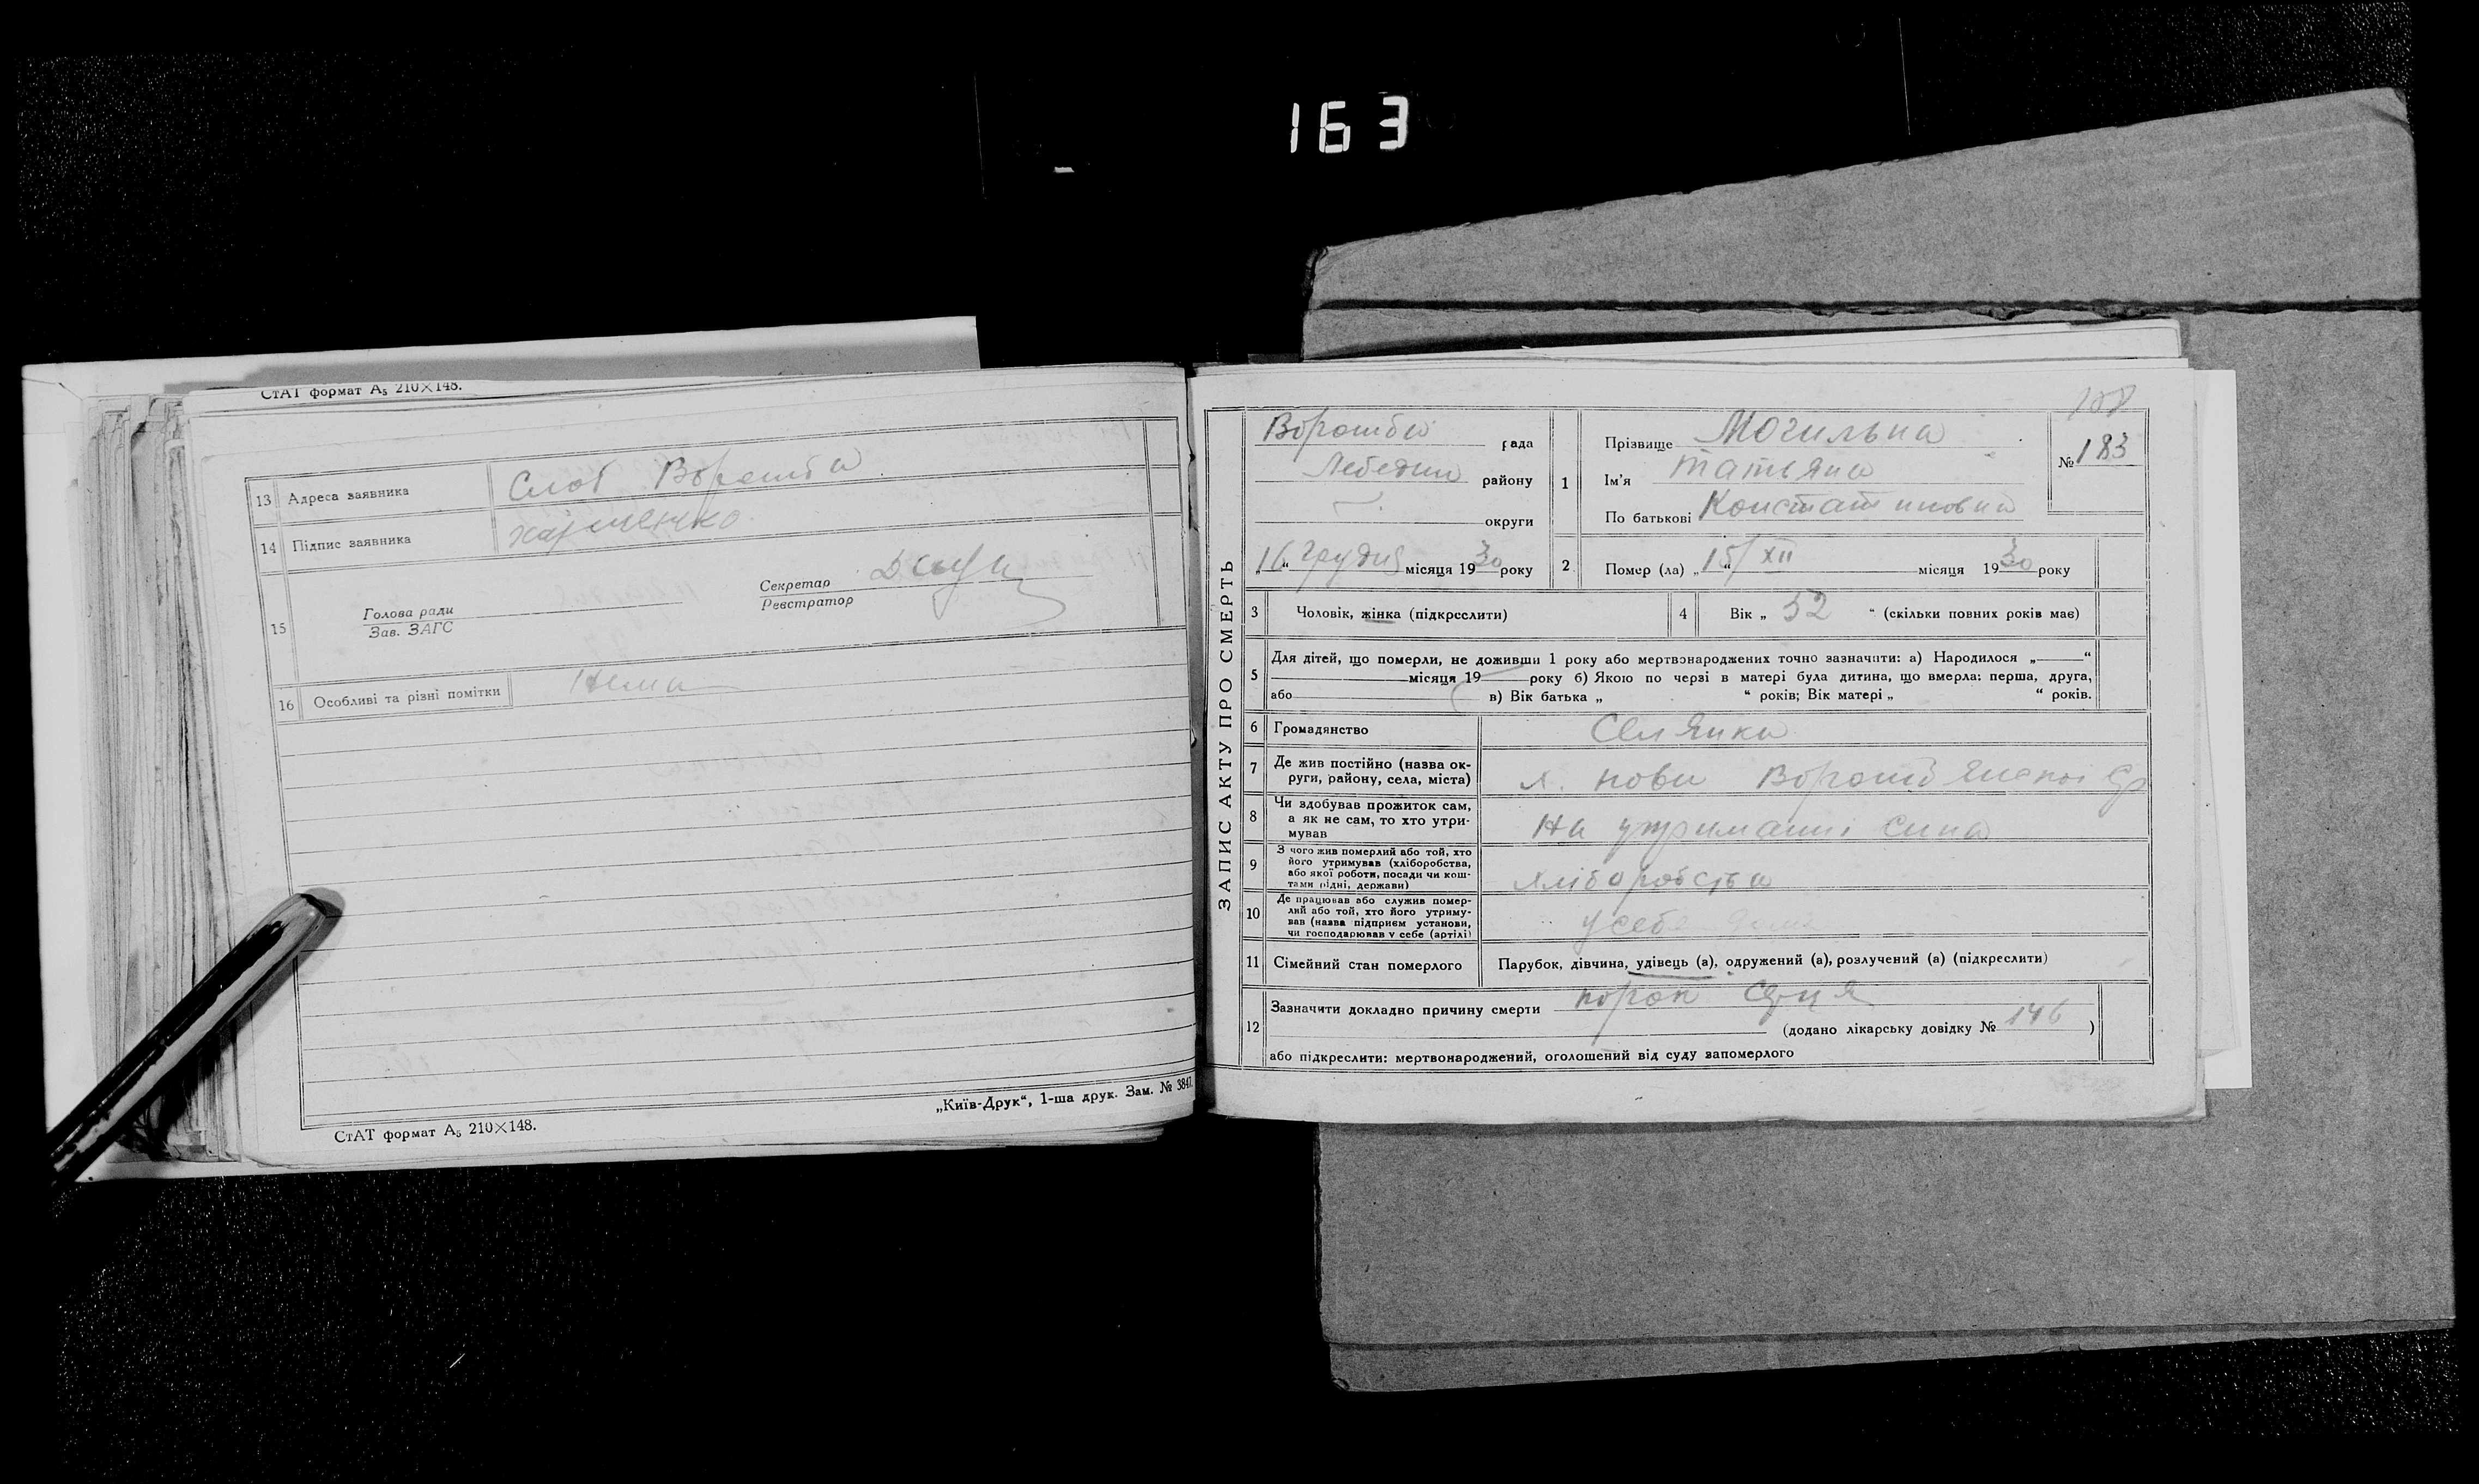 163
СтАТ формат А₅ 210×148.
13 Адреса заявника Слоб Ворожба
14 Підпис заявника Харченко
15 Голова ради
Зав. ЗАГС
Секретар
Реєстратор
16 Особливі та різні помітки Нема
„Київ-Друк“, 1-ша друк. Зам. № 3847.
СтАТ формат А₅ 210×148.
ЗАПИС АКТУ ПРО СМЕРТЬ
рада
Лебедин району
округи
„16“ грудня місяця 1930 року
1 Прізвище Могильна
Ім'я Татьяна
По батькові
№ 183
2 Помер (ла) „15/XII місяця 1930 року
3 Чоловік, жінка (підкреслити)
4 Вік „ 52 “ (скільки повних років має)
5 Для дітей, що померли, не доживши 1 року або мертвонароджених точно зазначити: а) Народилося „ “
місяця 19 року б) Якою по черзі в матері була дитина, що вмерла: перша, друга,
або в) Вік батька „ “ років; Вік матері „ “ років.
6 Громадянство Селянка
7 Де жив постійно (назва ок-
руги, району, села, міста)
8 Чи здобував прожиток сам,
а як не сам, то хто утри-
мував
На утриманні сина
9 З чого жив померлий або той, хто
його утримував (хліборобства,
або якої роботи, посади чи кош-
тами рідні, держави)
хліборобства
10 Де працював або служив помер-
лий або той, хто його утриму-
вав (назва підприєм установи,
чи господарював у себе (артілі)
у себе
11 Сімейний стан померлого Парубок, дівчина, удівець (а), одружений (а), розлучений (а) (підкреслити)
12 Зазначити докладно причину смерти порок
(додано лікарську довідку № 146 )
або підкреслити: мертвонароджений, оголошений від суду запомерлого